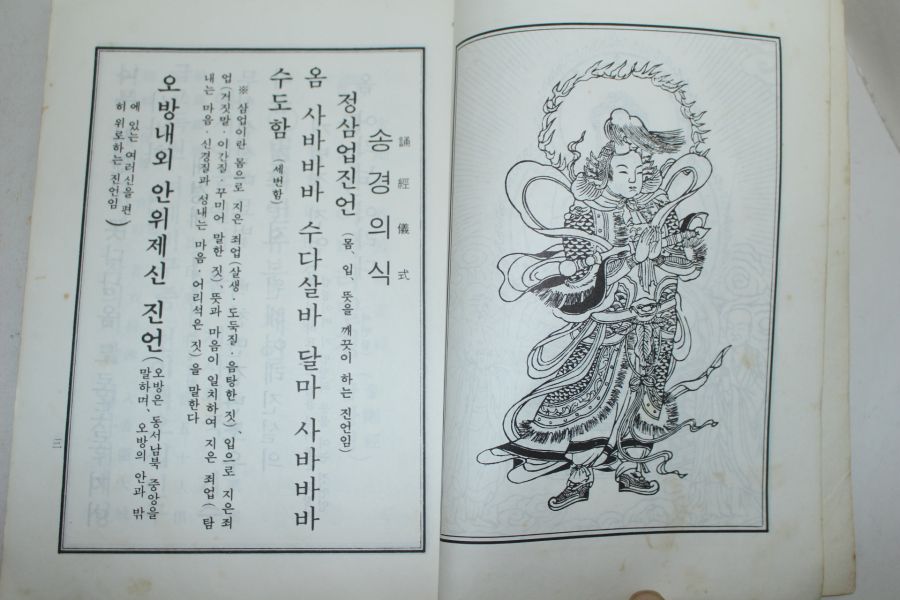 송경의식
誦經儀式
정삼업진언 (몸、입、뜻을 깨끗이 하는 진언임)
옴 사바바바 수다살바 달마 사바바바
수도함 (세번함)
※ 삼업이란 몸으로 지은 죄업 살생·도둑질·음탕한 짓)、입으로 지은죄
업(거짓말·이간질·꾸미어 말한 짓)、뜻과 마음이 일치하여 지은 죄업(탐
내는 마음·신경질과 성내는 마음·어리석은 짓)을 말한다
오방내외 안위제신 진언 (오방은 동서남북 중앙을
말하며、오방의 안과 밖
에 있는 여러신을 편
히 위로하는 진언임)
三